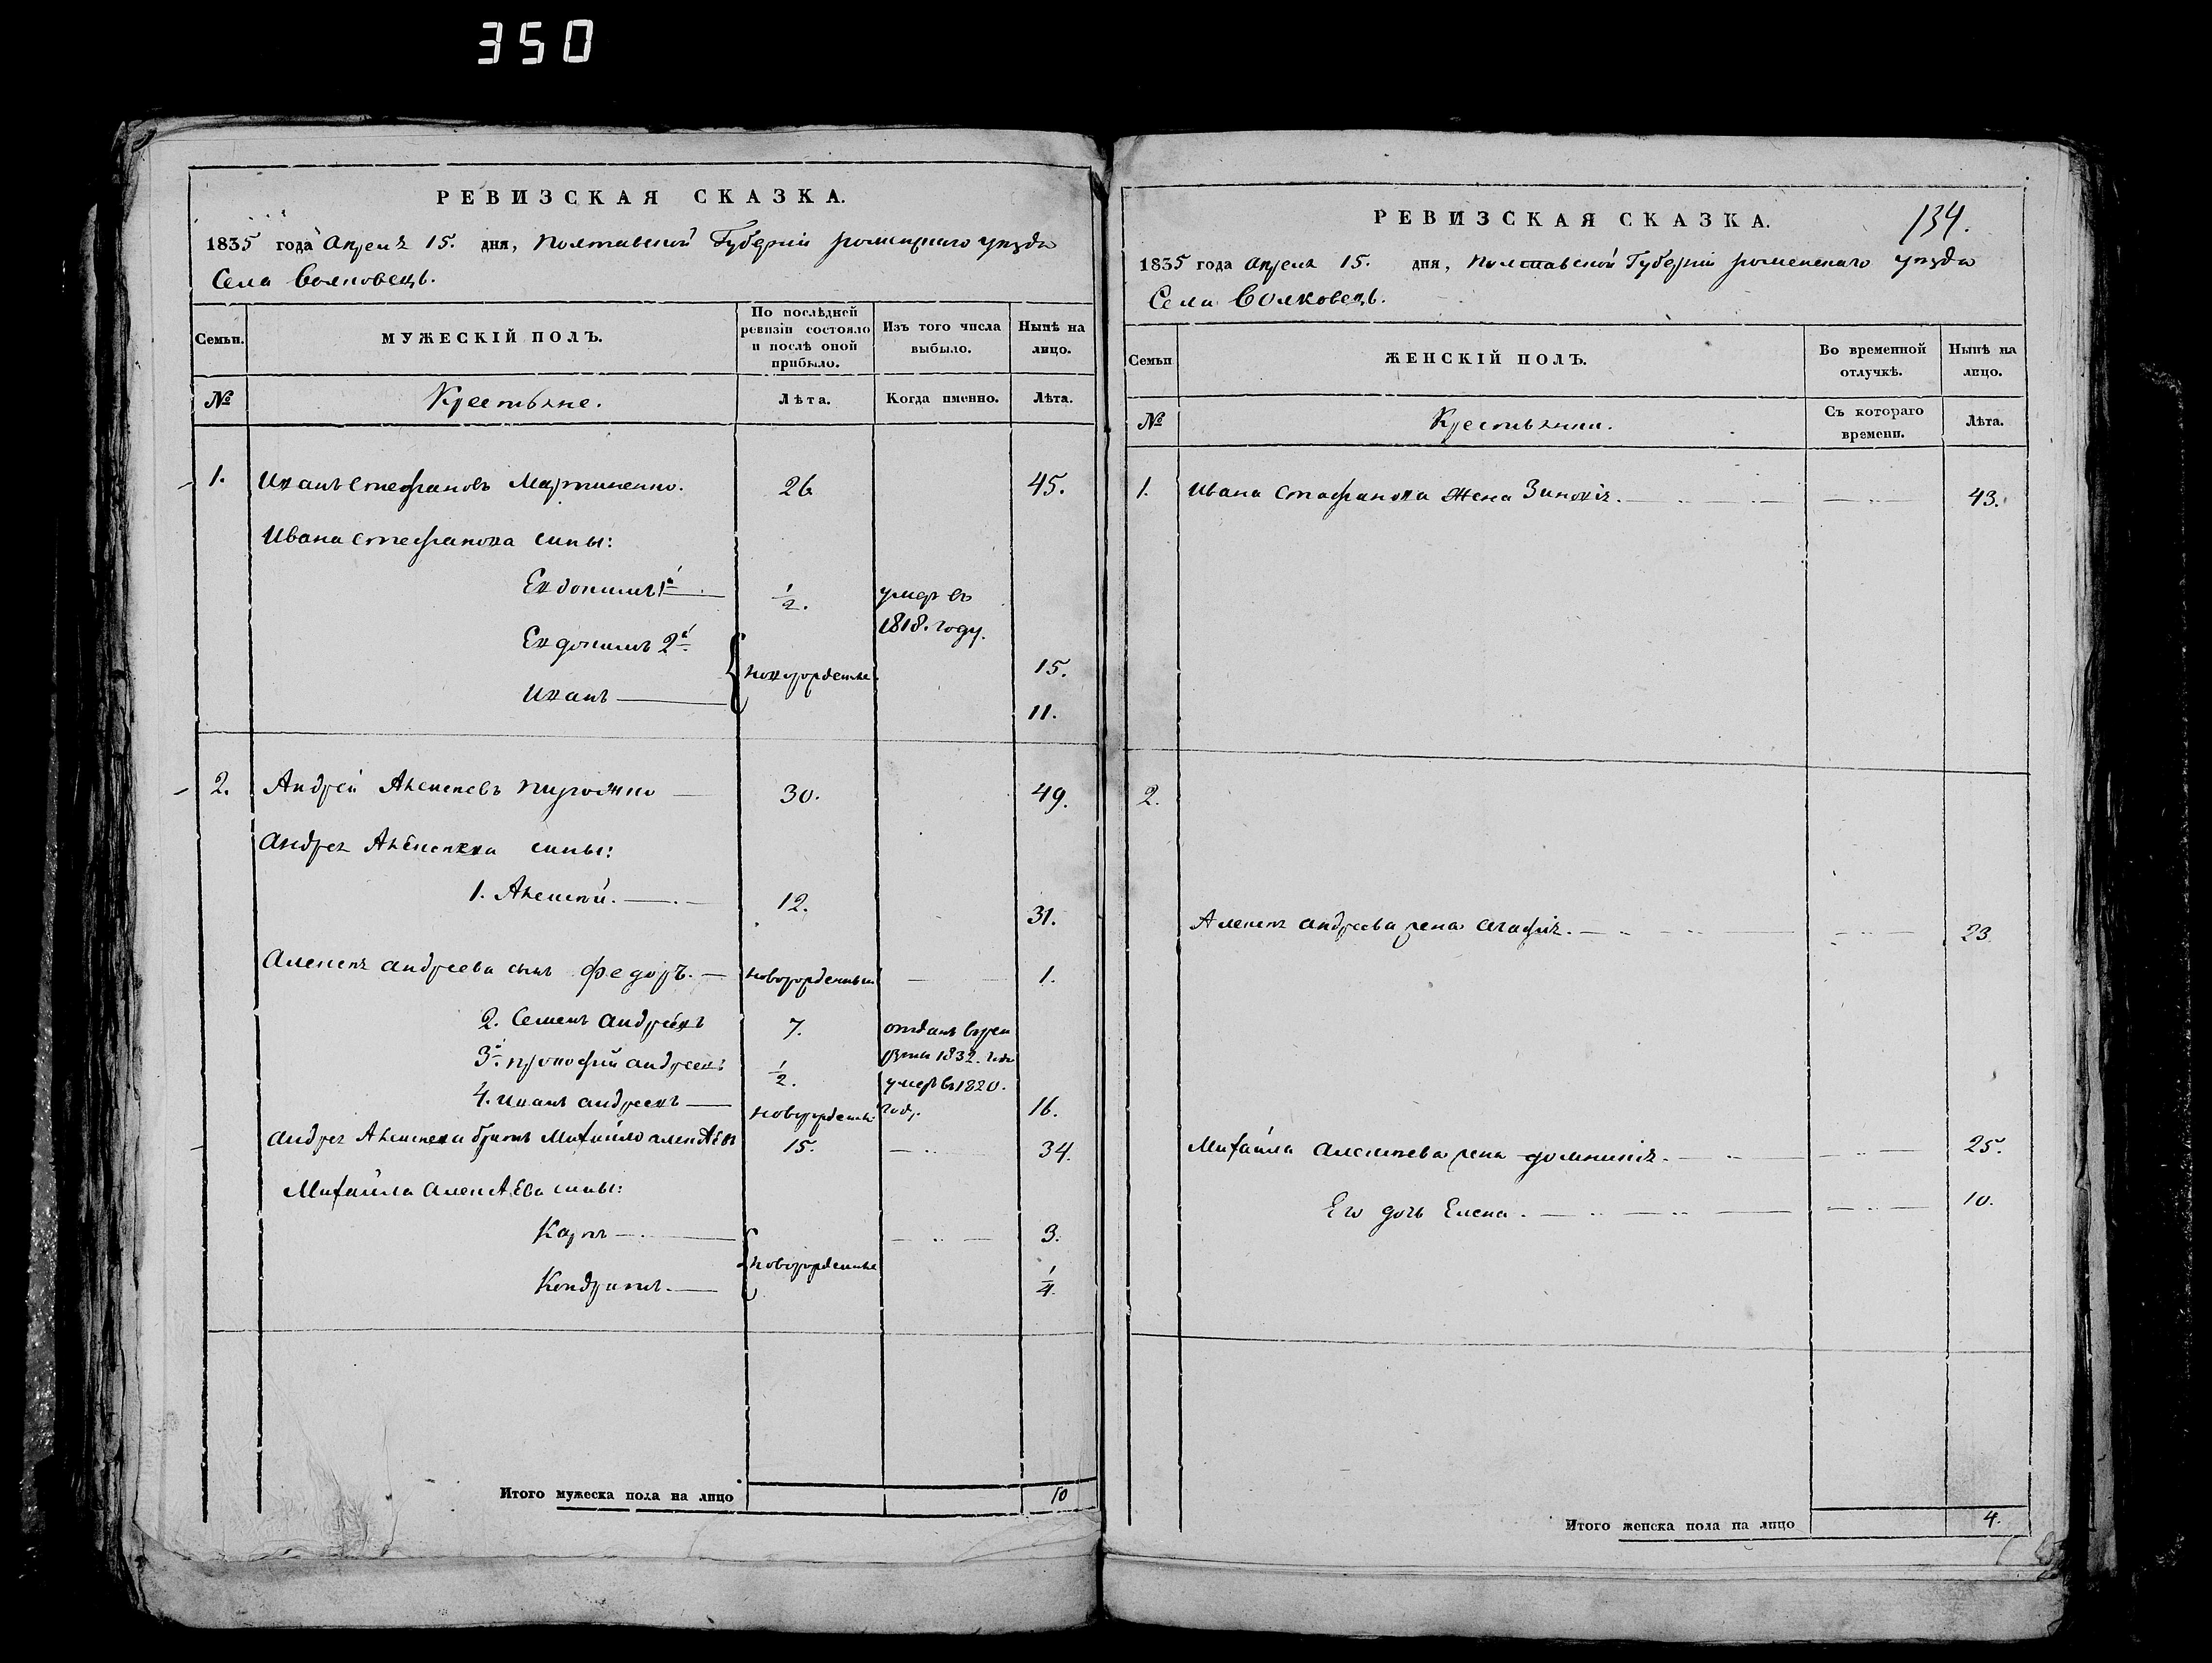 350
РЕВИЗСКАЯ СКАЗКА.
1835 года Апреля 15. дня, Полтавской Губернии роменскаго уезда
Села Волковецъ.
Семьи.
МУЖЕСКІЙ ПОЛЪ.
По послѣдней ревизіи состояло и послѣ оной прибыло.
Изъ того числа выбыло.
Нынѣ на лицо.
№
Крестьяне.
Лѣта.
Когда именно.
Лѣта.
1. Иванъ Стефановъ Мартиненко. 26 45.
Ивана Стефанова сины:
Евдокимъ 1й ½. умеръ въ 1818. году.
Евдокимъ 2й новорожденные 15.
Иванъ 11.
2. Андрей Алексеевъ 30. 49.
Андрея Алексеева сины:
1. Алексей. 12. 31.
Алексея андреева сынъ Федоръ. новорожденный 1.
2. Семенъ андреевъ 7. отданъ врекруты 1832. года
3й прокофий андреевъ ½. умеръ в 1820. году.
4. иванъ андреевъ новорожденны 16.
андрея Алексеева братъ Михайло алексѣевъ 15. 34.
Михайла алексѣева сины:
Карпъ новорожденные 3.
Кондратъ. ¼.
Итого мужеска пола на лицо 10
134.
РЕВИЗСКАЯ СКАЗКА.
1835 года апреля 15. дня, Полтавской Губернии роменскаго уезда
Села Волковецъ.
Семьи
ЖЕНСКІЙ ПОЛЪ.
Во временной отлучкѣ.
Нынѣ на лицо.
№
Крестьянки.
Съ котораго времени.
Лѣта.
1. Ивана Стефанова жена Зиновія. 43.
2.
Алексея андреева жена агафия. 23.
Михайла алексеева жена домникия. 25.
Его дочь Елена. 10.
Итого женска пола на лицо 4.